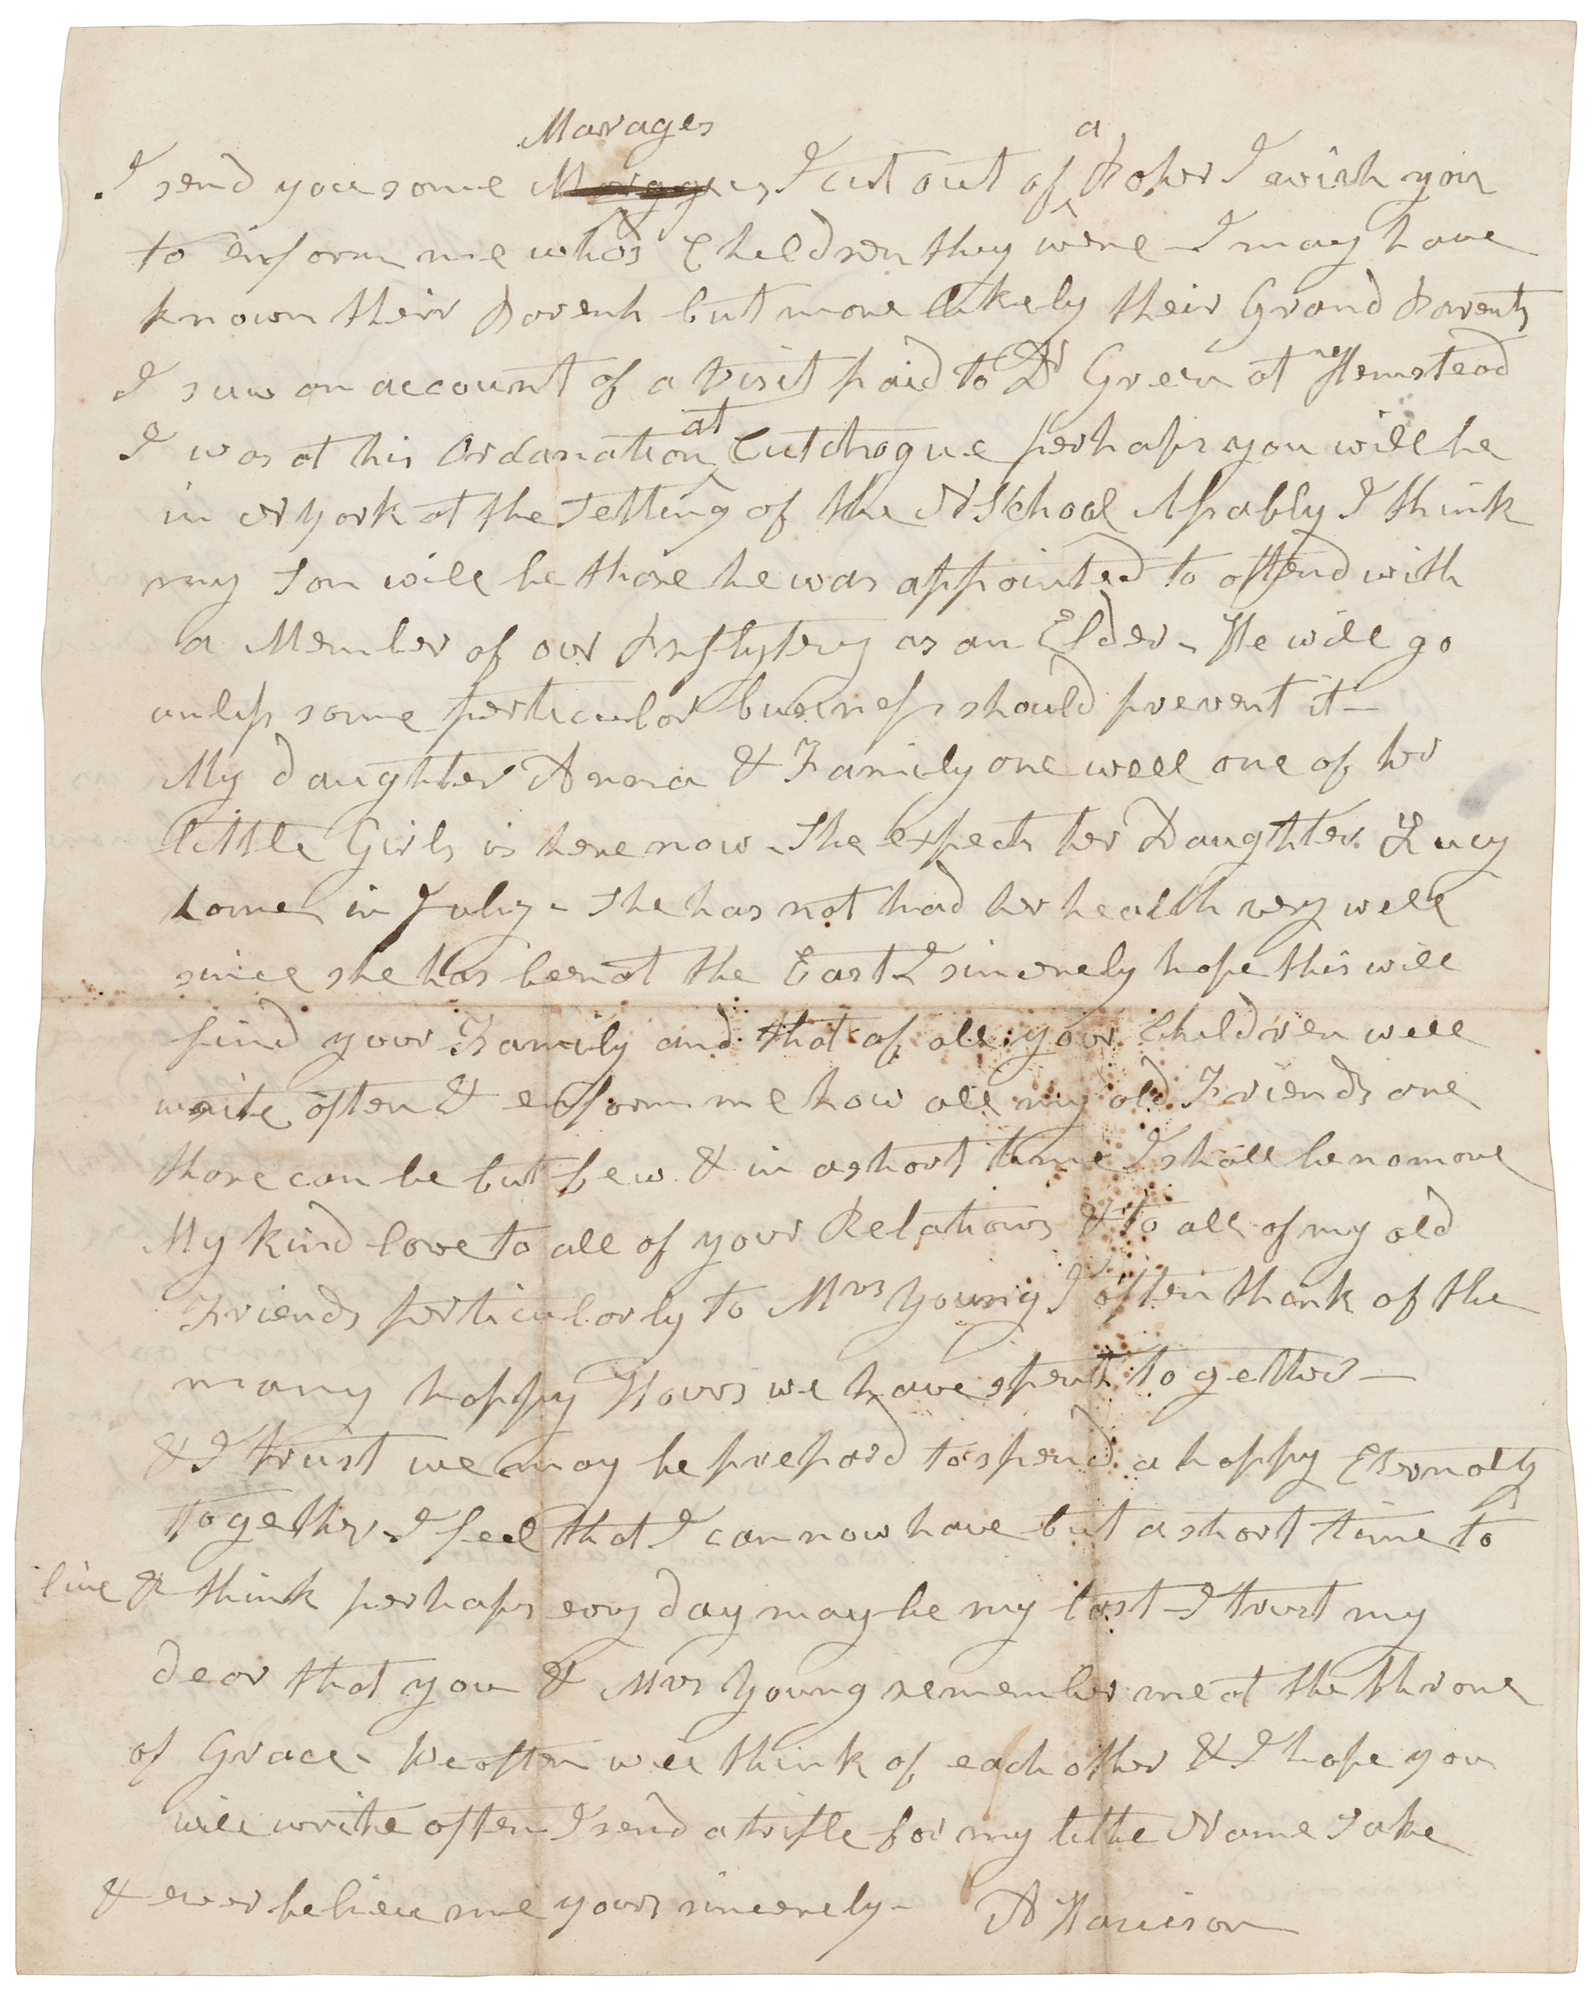 Marages
I send you some I cut out of a Paper I wish you
to enform me who's Children they were - I may have
known their Parents but more likely their Grand Parents
I saw an account of a Visit paid to Dr Green at Hemstead
I was at his Ordanation at Cutchogue perhaps you will be
in N York at the Setting of the N School I think
my Son will be thare he was appointed to attend with
a Member of our as an Elder - He will go
unless some perticular buisness should prevent it -
My daughter Anna & Family are well one of her
little Girls is here now - She expects her Daughter Lucy
home in July - She has not had her health very well
since she has been at the East I sincerely hope this will
find your Family and that of all your Children well
write often & enform me how all my old Friends are
thare can be but few & in a short time I shall be no more
My kind love to all of your Relations & to all of my old
Friends perticularly to Mrs Young I often think of the
many happy Hours we have spent together -
& I trust we may be prepard to spend a happy Eternaty
together I feel that I can now have but a short time to
live & think perhaps every day may be my last - I trust my
dear that you & Mrs Young remember me at the throne
of Grace - We often will think of each other & I hope you
will write often I send a trifle for my little Name Sake
& ever believe me yours sincerely - A Harrison